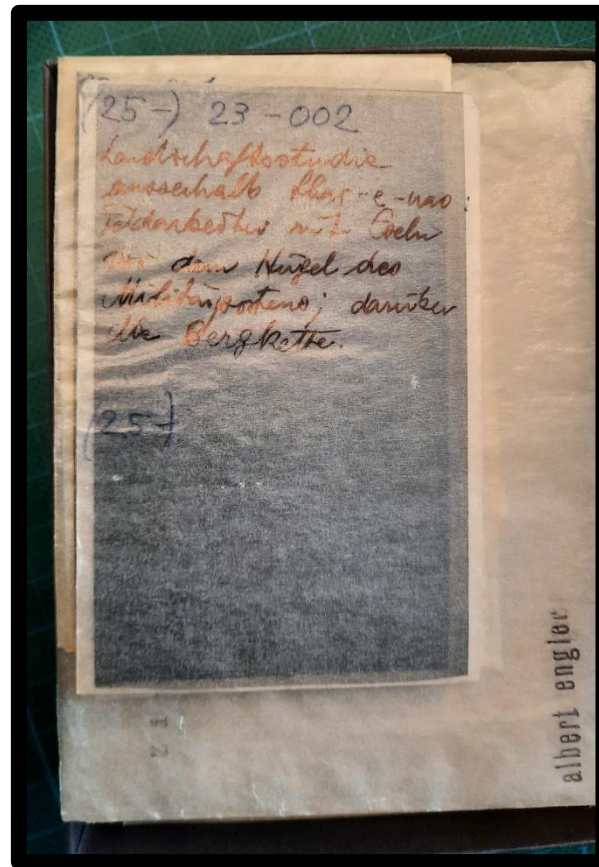 (25-) 23-002
Landschaftsstudie
ausserhalb Khar-e-nao:
Feldarbeiter mit Oseln
vor dem Hügel des
Militärpostens; darüber
die Bergkette.
(25-)
albert engler